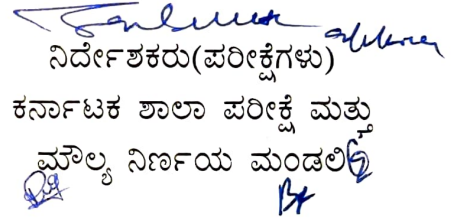 ನಿರ್ದೇಶಕರು(ಪರೀಕ್ಷೆಗಳು)
ಕರ್ನಾಟಕ ಶಾಲಾ ಪರೀಕ್ಷೆ ಮತ್ತು
ಮೌಲ್ಯ ನಿರ್ಣಯ ಮಂಡಲಿ